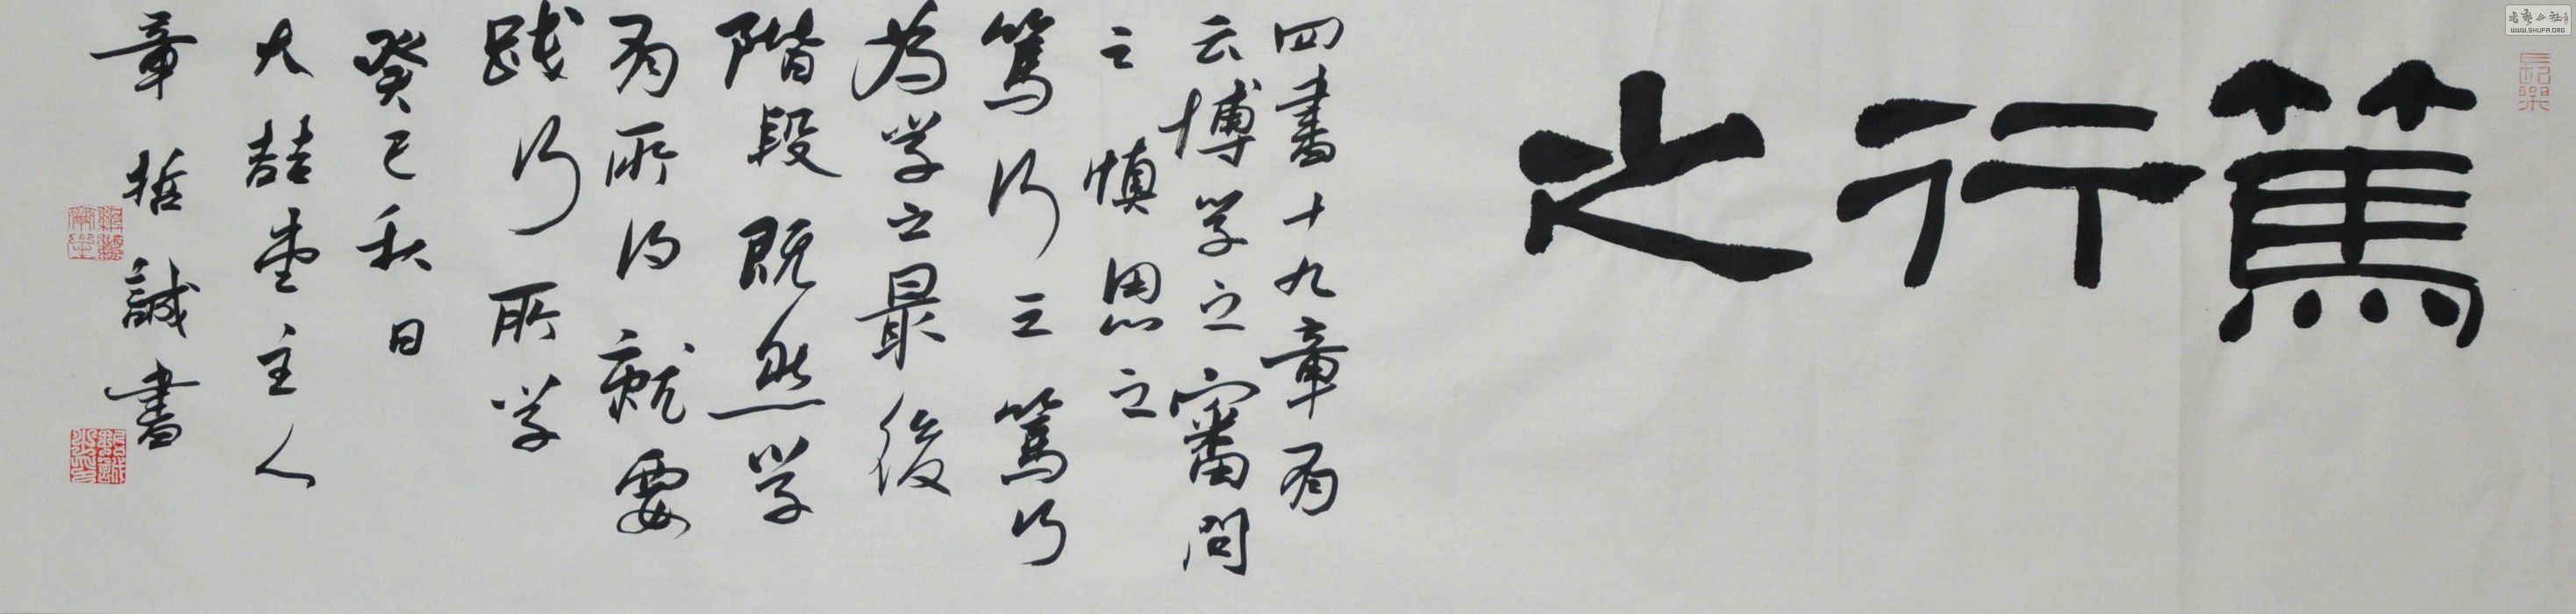 篤行之
四書十九章有
云博学之審問
之慎思之
篤行之篤行
為学之最後
階段既然学
有所得就要
践行所学
癸巳秋日
大喆堂主人
章哲誠書
長樂
WWW.SHUFA.ORG